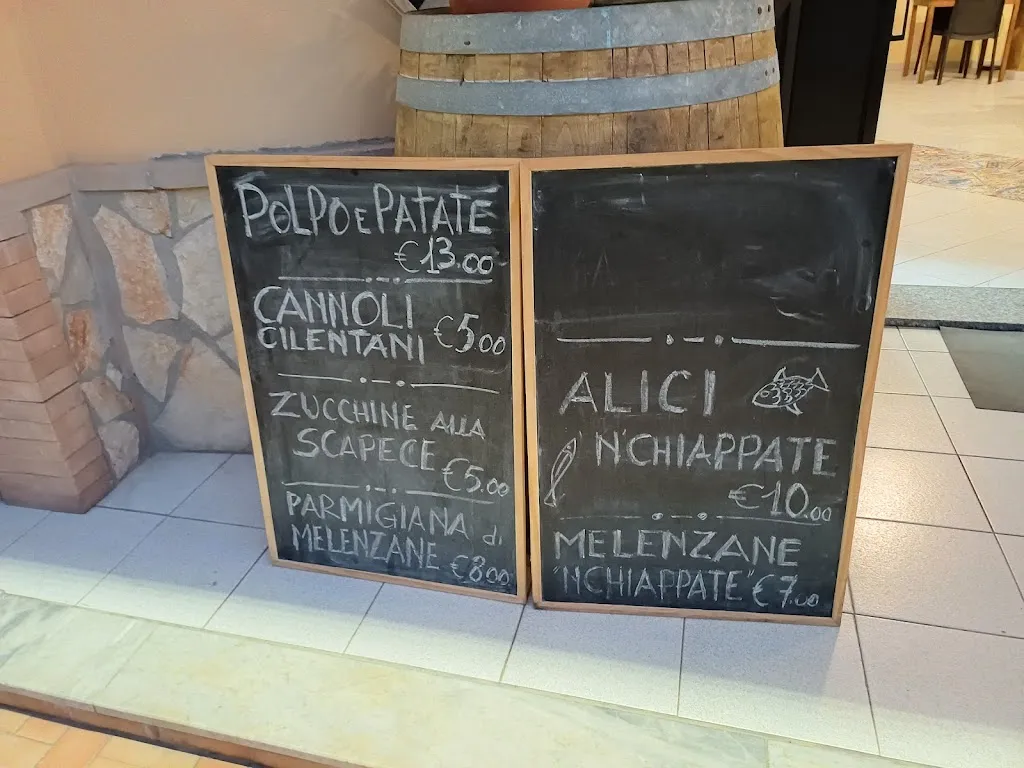 POLPO E PATATE
€ 13.00
CANNOLI
CILENTANI € 5.00
ZUCCHINE ALLA
SCAPECE € 5.00
PARMIGIANA di
MELENZANE € 8.00
ALICI
N'CHIAPPATE
€ 10.00
MELENZANE
"N'CHIAPPATE" € 7.00